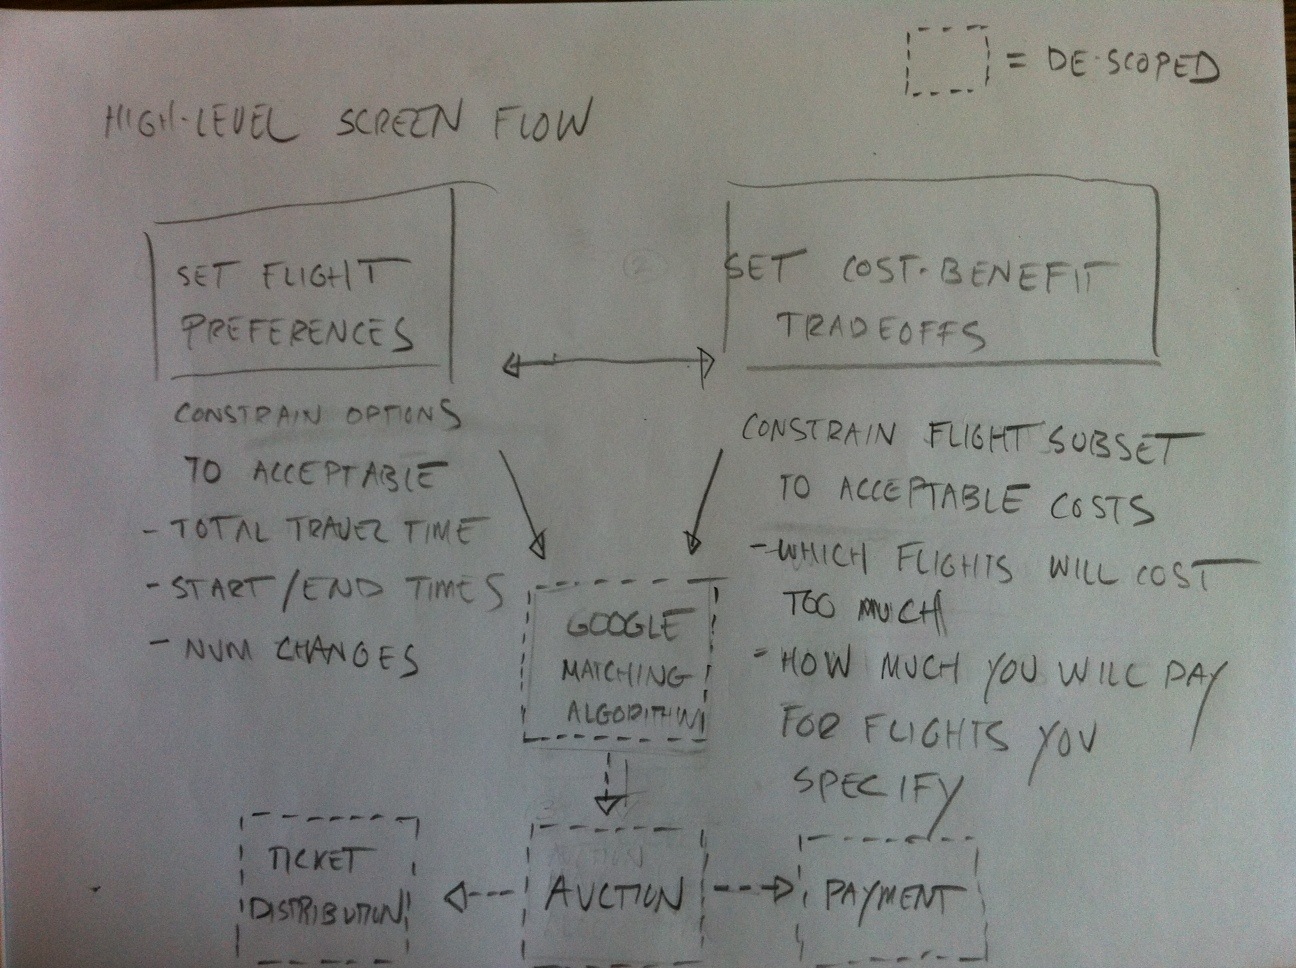 = DE-SCOPED
HIGH-LEVEL SCREEN FLOW
SET FLIGHT
PREFERENCES
CONSTRAIN OPTIONS
TO ACCEPTABLE
- TOTAL TRAVEL TIME
- START/END TIMES
- NUM CHANGES
SET COST-BENEFIT
TRADEOFFS
CONSTRAIN FLIGHT SUBSET
TO ACCEPTABLE COSTS
- WHICH FLIGHTS WILL COST
TOO MUCH
- HOW MUCH YOU WILL PAY
FOR FLIGHTS YOU
SPECIFY
GOOGLE
MATCHING
ALGORITHM
TICKET
DISTRIBUTION
AUCTION
PAYMENT